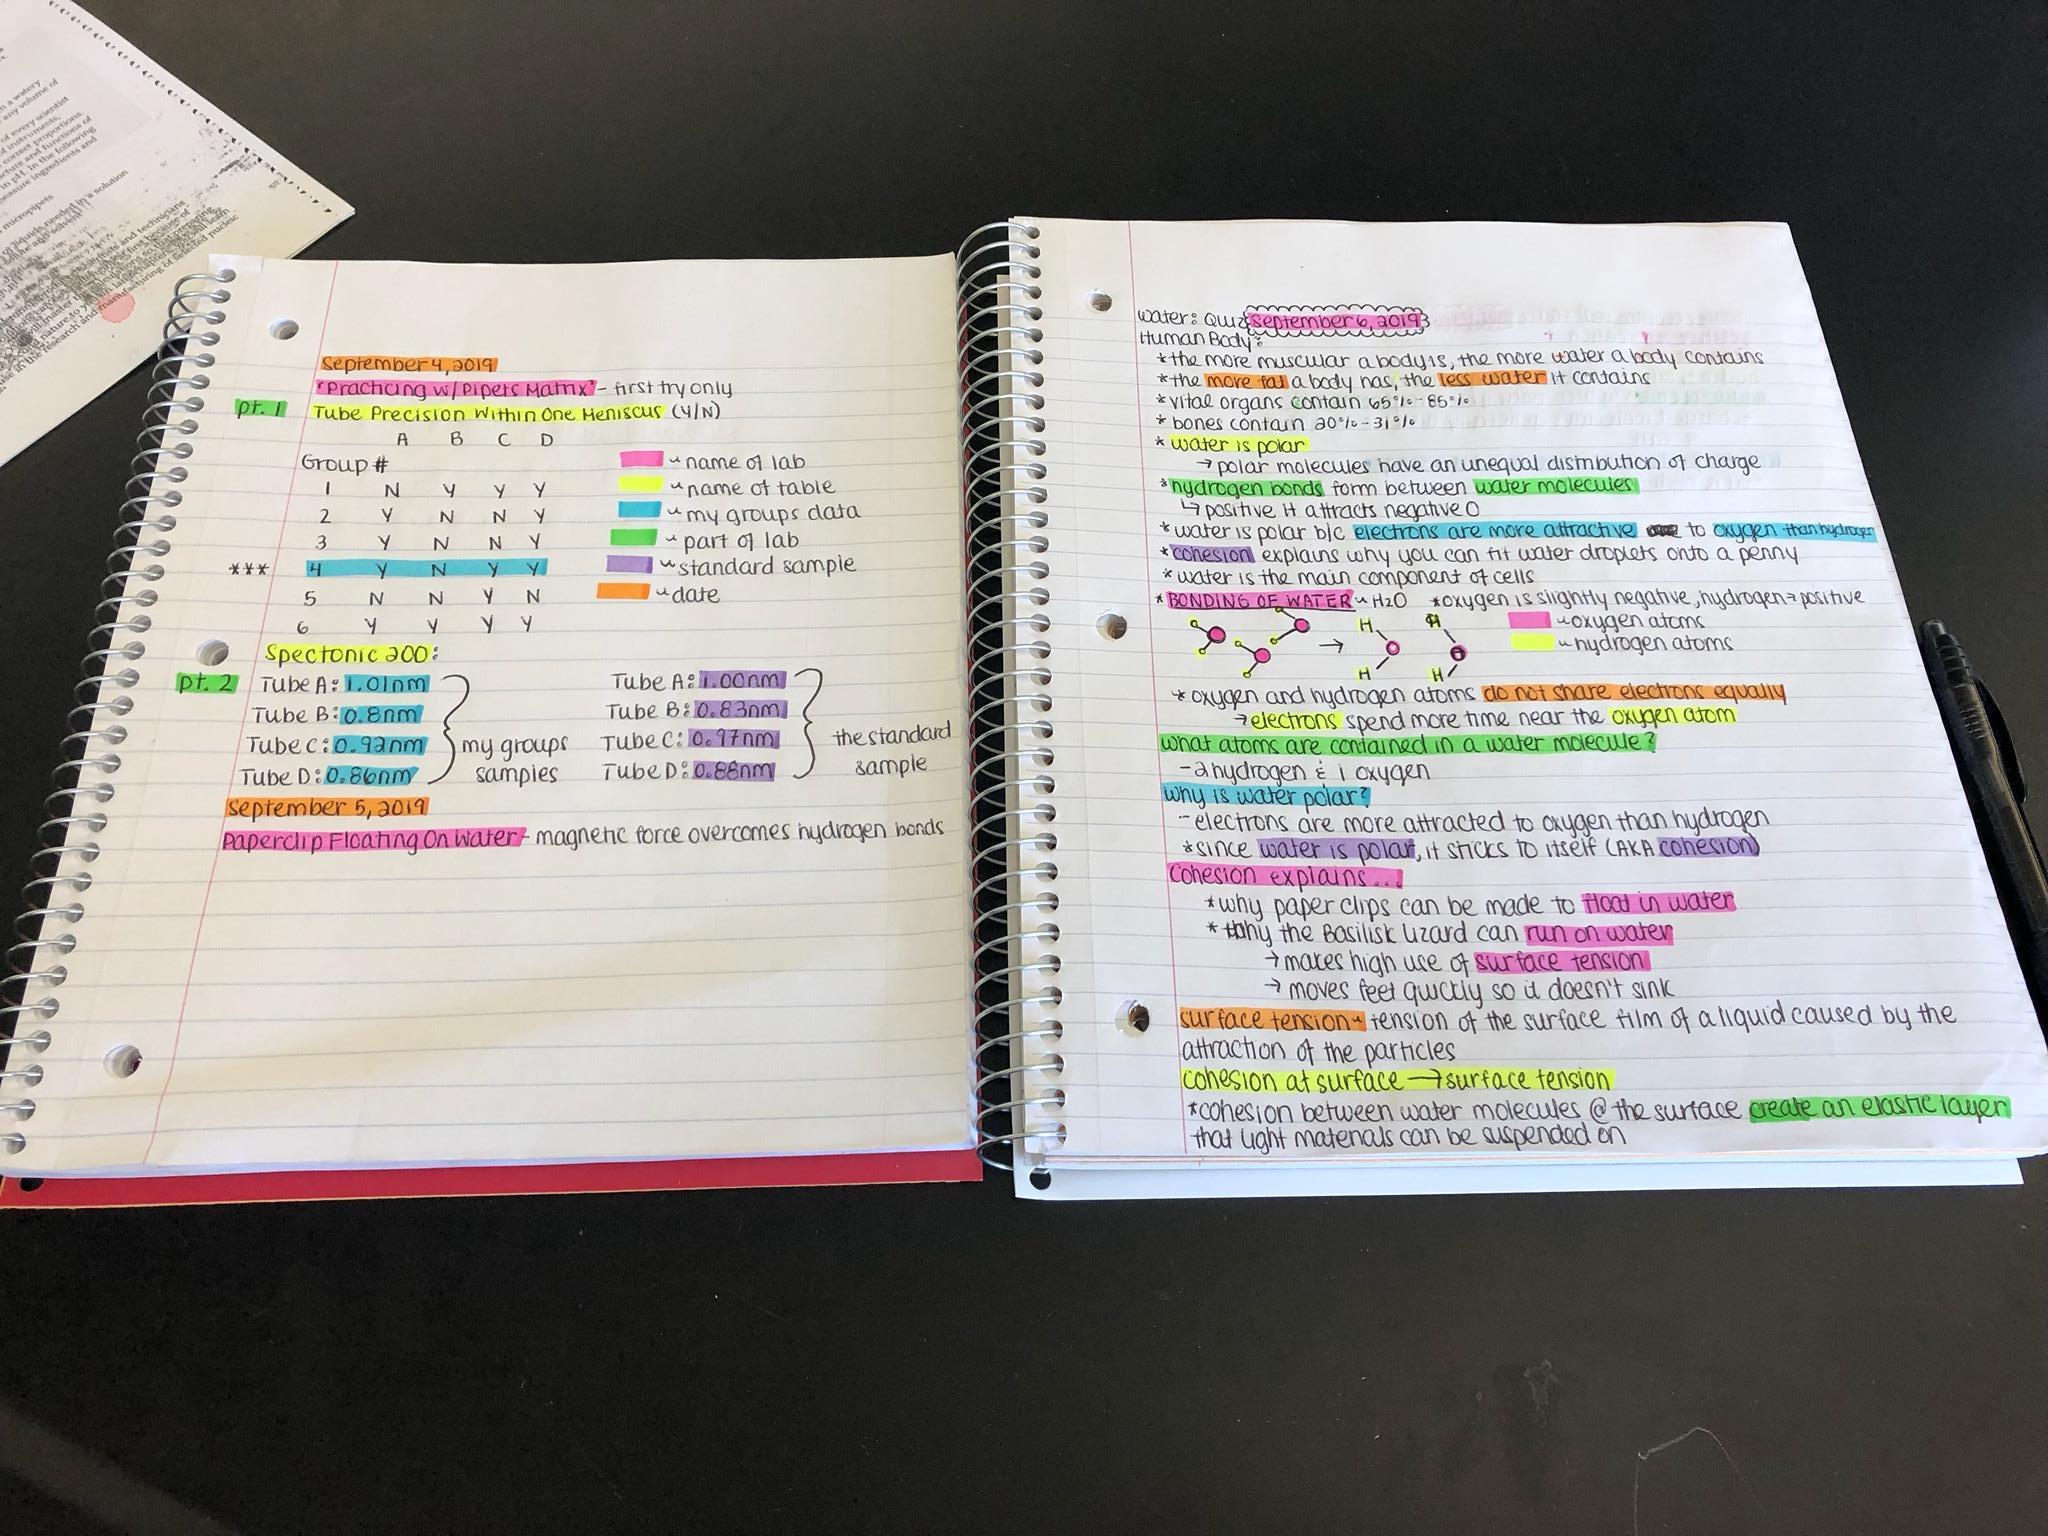 n a watery
any volume of
of every scientist
of instruments,
correct proportions
cture and functions of
in pH. In the following
easure ingredients and
micropipets
or liquids needed in a solution
and technicians
first because of
manufacturing of selected nucleic
in the research and
September 4, 2019
"Practicing w/ Pipets Matrix" - first try only
pt. 1 Tube Precision Within One Meniscus (Y/N)
A B C D
Group #
1 N Y Y Y
2 Y N N Y
3 Y N N Y
*** 4 Y N Y Y
5 N N Y N
6 Y Y Y Y
~ name of lab
~ name of table
~ my groups data
~ part of lab
~ standard sample
~ date
Spectonic 200:
pt. 2 Tube A: 1.01nm
Tube B: 0.8nm
Tube C: 0.92nm
Tube D: 0.86nm
my groups
samples
Tube A: 1.00nm
Tube B: 0.83nm
Tube C: 0.97nm
Tube D: 0.88nm
the standard
sample
September 5, 2019
Paperclip Floating On Water - magnetic force overcomes hydrogen bonds
Water: Quiz September 6, 2019
Human Body:
*the more muscular a body is, the more water a body contains
*the more fat a body has, the less water it contains
*vital organs contain 65%-85%
*bones contain 20%-31%
*water is polar
→ polar molecules have an unequal distribution of charge
*hydrogen bonds form between water molecules
↳ positive H attracts negative O
*water is polar b/c electrons are more attractive to oxygen than hydrogen
*cohesion explains why you can fit water droplets onto a penny
*water is the main component of cells
*BONDING OF WATER ~ H2O *oxygen is slightly negative, hydrogen → positive
H H
→
H H
~ oxygen atoms
~ hydrogen atoms
*oxygen and hydrogen atoms do not share electrons equally
→ electrons spend more time near the oxygen atom
what atoms are contained in a water molecule?
- 2 hydrogen & 1 oxygen
why is water polar?
- electrons are more attracted to oxygen than hydrogen
*since water is polar, it sticks to itself (AKA cohesion)
Cohesion explains...
*why paper clips can be made to float in water
*why the Basilisk Lizard can run on water
→ makes high use of surface tension
→ moves feet quickly so it doesn't sink
surface tension - tension of the surface film of a liquid caused by the
attraction of the particles
cohesion at surface → surface tension
*cohesion between water molecules @ the surface create an elastic layer
that light materials can be suspended on